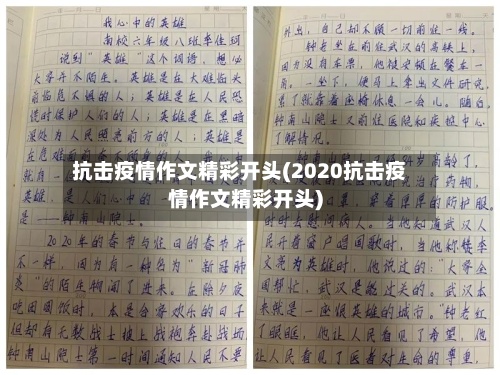 我心中的英雄
南校六年级八班李佳珂
说到“英雄”这个词语，想必
大家并不陌生。英雄是在大难临头
前临危不惧的人；英雄是在人民恐
慌时保护人们的人；英雄是在黑暗
深处为人民照亮前方的人；英雄是
在危难
就是
英雄，是人们心中的
是——钟南山院士。
2020年的春节与往日的春节并
不一样，因为有一种名为“新冠肺
炎”的陌生物闯了进来。在除夕夜
吃团圆饭时，本是合家欢乐的日子
但却有无数战士披上战袍奔赴战场，
钟南山院士第一时间通知人民不要
外出，自己却不顾一切前往一线。
钟老坐在前往武汉的高铁上，
因为没有车票，他被安顿在餐车一
角。一坐下，便马上拿出文件研究，
累了就靠着座椅休息一会儿。随后，
钟南山院士又前往医院和疾控中心
了解情况。
岁高龄了，
治疗药物，
穿着厚厚的防护服，
时时去慰问病人。当他知道武汉人
民开着窗户唱国歌时，当他称赞李
文亮为英雄时，他说过的：“大家全
国帮忙，武汉是能过关的。武汉本
来就是一座很英雄的城市。”钟老红
了眼眶，他让人民看见了希望，他
让人民看见了医者对生命的尊重，
抗击疫情作文精彩开头(2020抗击疫
情作文精彩开头)